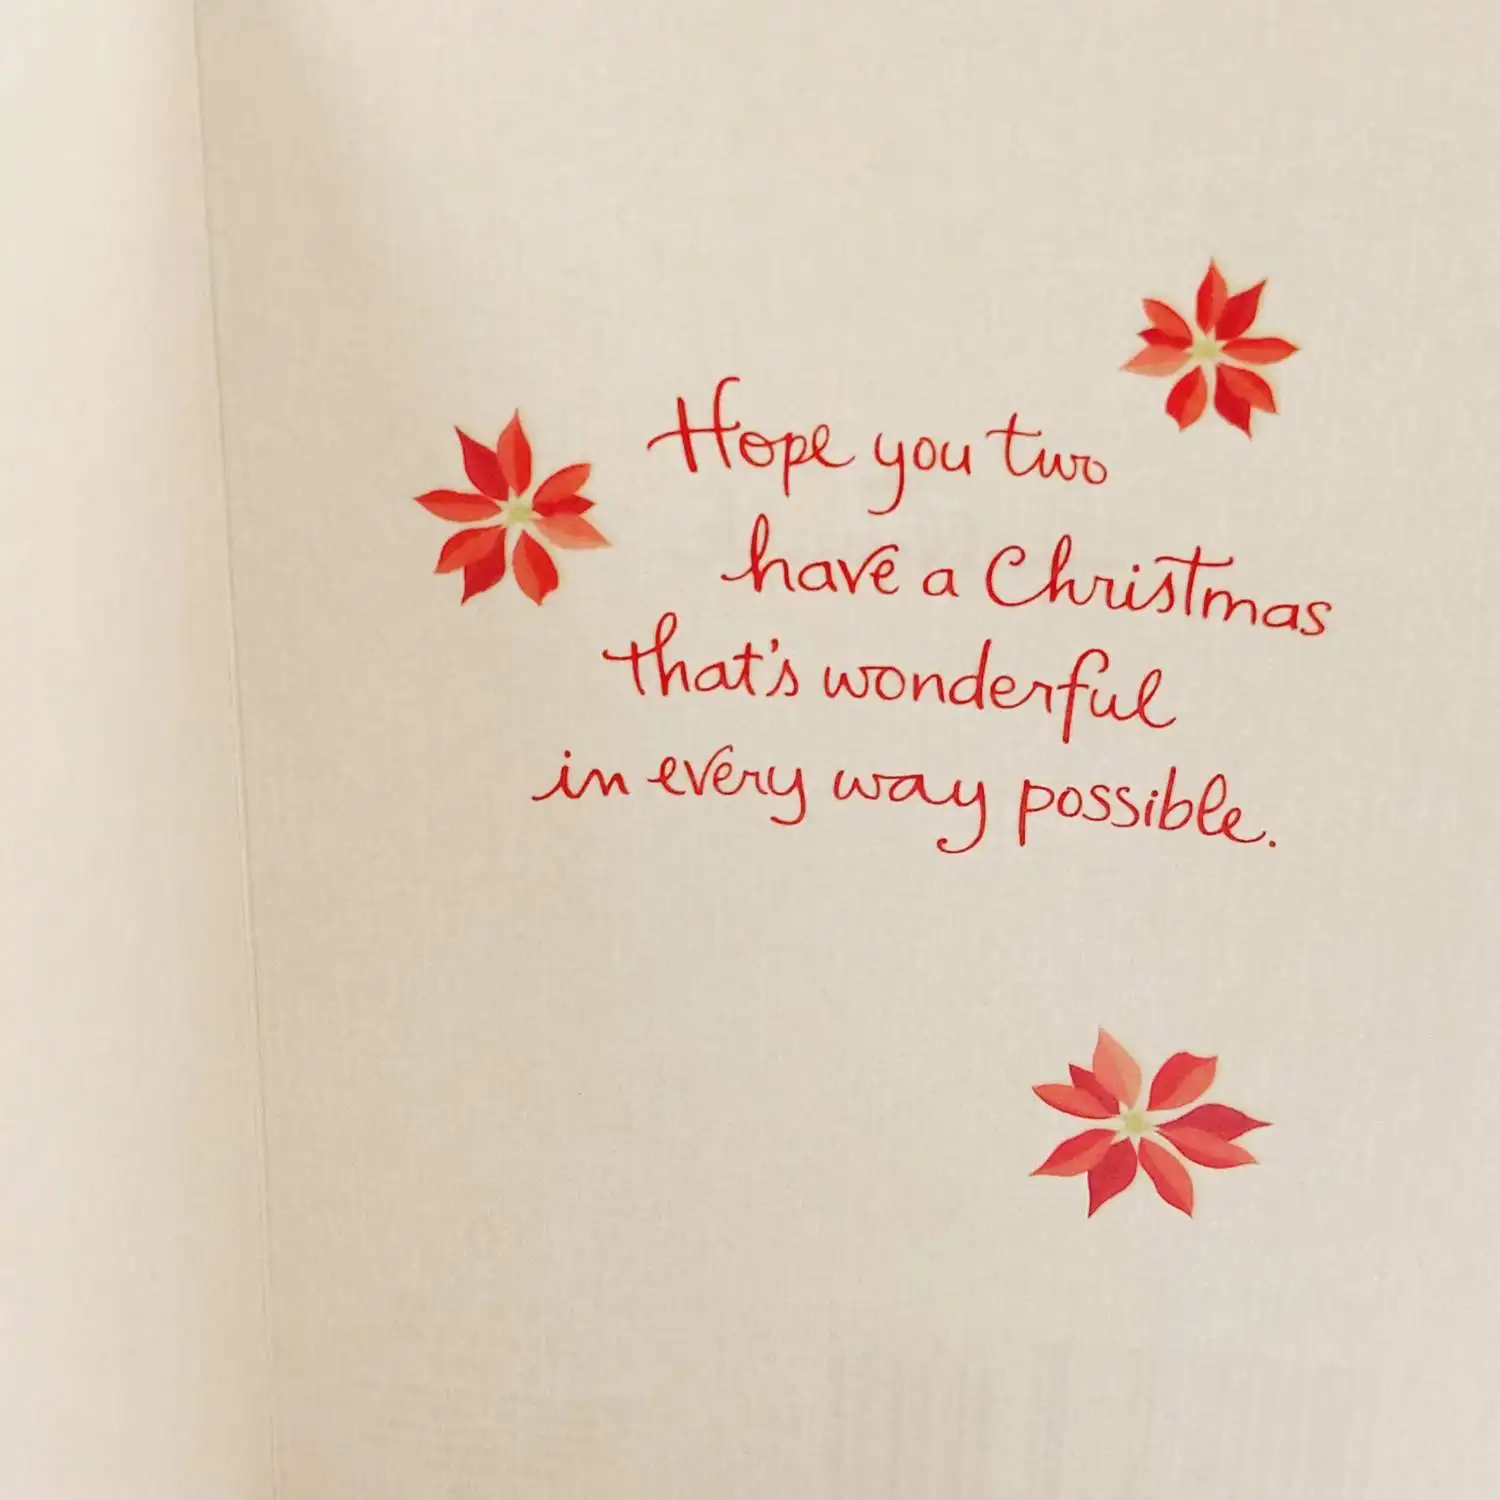 Hope you two
have a Christmas
that's wonderful
in every way possible.